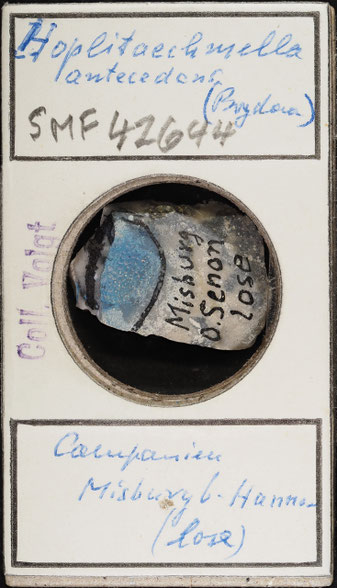 Hoplitaechmella
antecedens
(Brydone)
SMF 42644
Coll. Voigt
Misburg
O. Senon
lose
Campanien
Misburg b. Hann.
(lose)